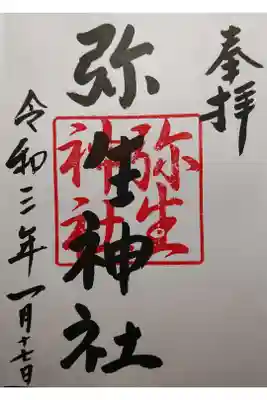 奉拝
弥生神社
弥生
神社
令和三年一月十七日